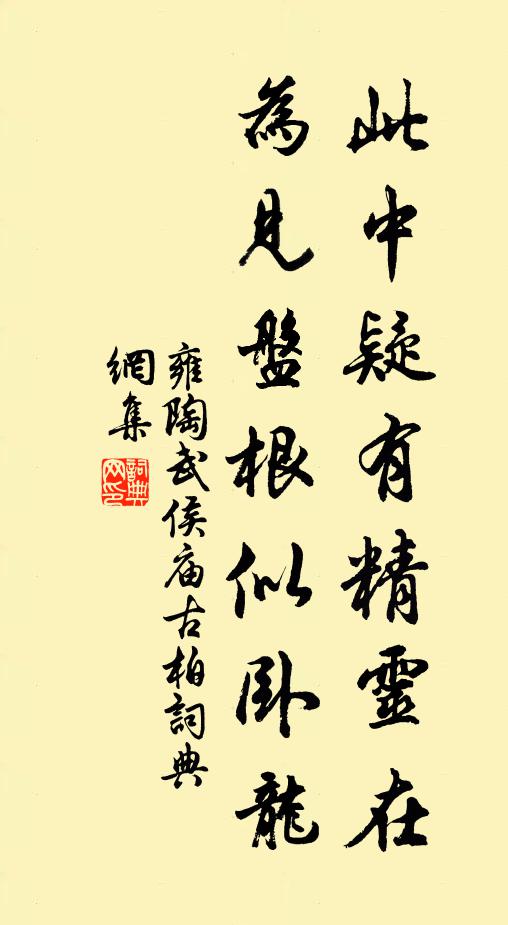 此中疑有精靈在
為見盤根似卧龍
雍陶武侯庙古柏詞典
網集
詞典
网印